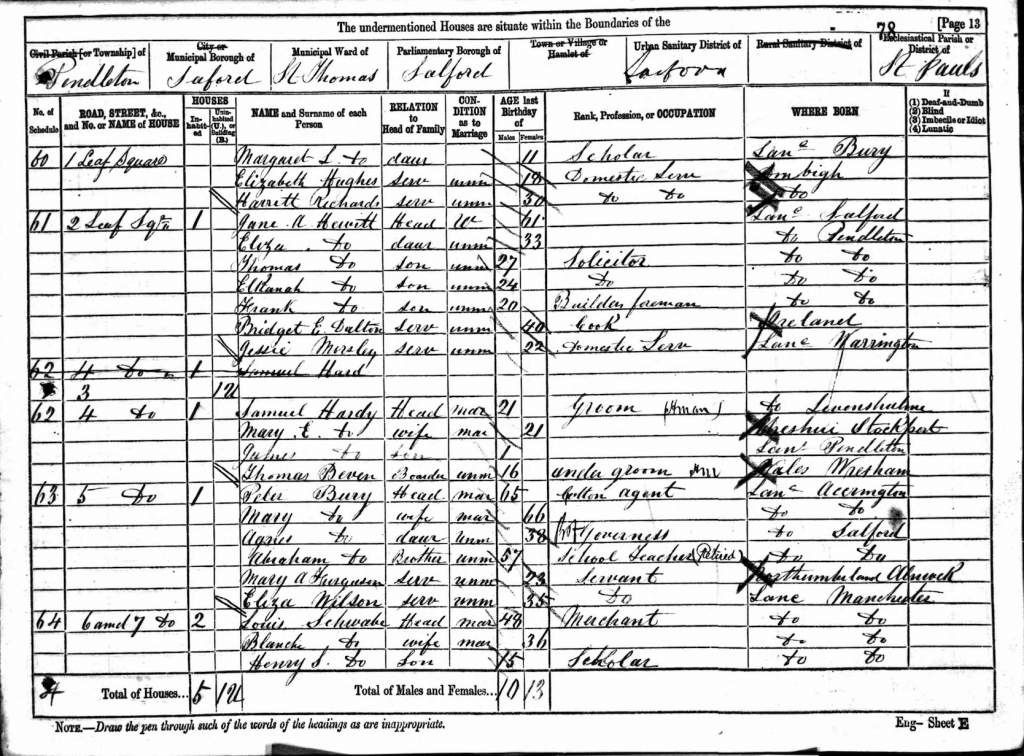 The undermentioned Houses are situate within the Boundaries of the
78 [Page 13
Civil Parish [or Township] of
Pendleton
City or Municipal Borough of
Salford
Municipal Ward of
St Thomas
Parliamentary Borough of
Salford
Town or Village or Hamlet of
Urban Sanitary District of
Rural Sanitary District of
Ecclesiastical Parish or District of
St Pauls
No. of Schedule
ROAD, STREET, &c., and No. or NAME of HOUSE
HOUSES
Inhabited
Uninhabited (U.), or Building (B.)
NAME and Surname of each Person
RELATION to Head of Family
CONDITION as to Marriage
AGE last Birthday of
Males Females
Rank, Profession, or OCCUPATION
WHERE BORN
If
(1) Deaf-and-Dumb
(2) Blind
(3) Imbecile or Idiot
(4) Lunatic
60 1 Leaf Square Margaret S. do daur 11 Scholar Lanc Bury
Elizabeth Hughes serv unm 18 Domestic Serv
Harrett Richards serv unm 30 do do do
61 2 Leaf Sqre 1 Jane A Hewitt Head W 61 Lanc Salford
Eliza do daur unm 33 do Pendleton
Thomas do son unm 27 Solicitor do do
Elkanah do son unm 24 do do do
Frank do son unm 20 Builders foreman do do
Bridget E. Dalton serv unm 40 Cook Ireland
Jessie Morsley serv unm 22 Domestic Serv Lanc Warrington
62 4 do 1 Samuel Hard
3 1U
62 4 do 1 Samuel Hardy Head mar 21 Groom do Levenshulme
Mary E. do wife mar 21 Cheshire Stockport
James do son 1 Lanc Pendleton
Thomas Beven Boarder unm 16 under groom Wales Wrexham
63 5 do 1 Peter Bury Head mar 65 Cotton agent Lanc Accrington
Mary do wife mar 66 do do
Agnes do daur unm 38 Governess do Salford
Abraham do Brother unm 57 School Teacher (Retired do do
Mary A Furguson serv unm 73 Servant Northumberland Alnwick
Eliza Wilson serv unm 35 do Lanc Manchester
64 6 and 7 do 2 Louis Schwabe Head mar 48 Merchant do do
Blanche do wife mar 36 do do
Henry S. do Son 15 Scholar do do
4 Total of Houses... 5 1U Total of Males and Females... 10 13
NOTE.—Draw the pen through such of the words of the headings as are inappropriate.
Eng— Sheet E